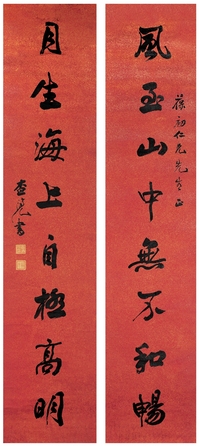 風至山中無不和暢
葆初仁兄先生正
月生海上自極高明
書